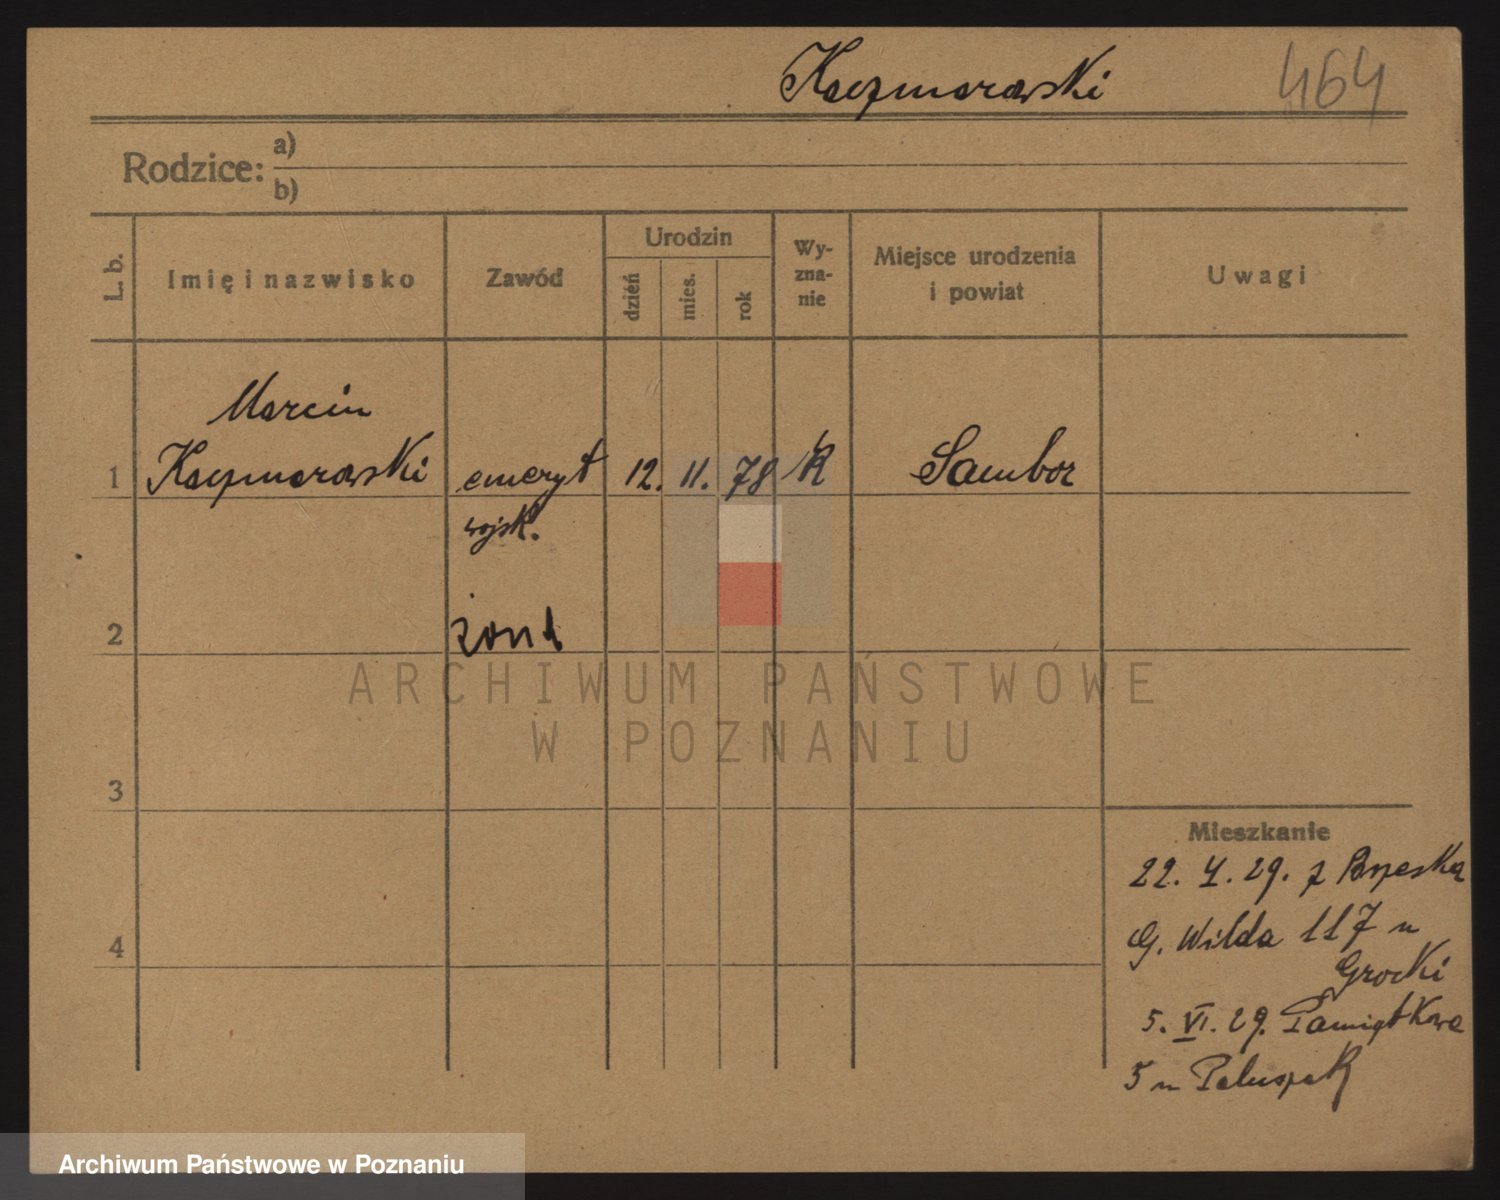 Kaczmarowski 464
Rodzice: a)
b)
L. b. Imię i nazwisko Zawód Urodzin dzień mies. rok Wy-zna-nie Miejsce urodzenia i powiat Uwagi
Marcin
1 Kaczmarowski emeryt 12. 11. 78 rk Sambor
wojsk.
2 żona
3
Mieszkanie
22. V. 29. z Brzeska
4 G. Wilda 117 u
Grocki
5. VI. 29. Pamiątkowa
5 u Paluszak
ARCHIWUM PAŃSTWOWE
W POZNANIU
Archiwum Państwowe w Poznaniu